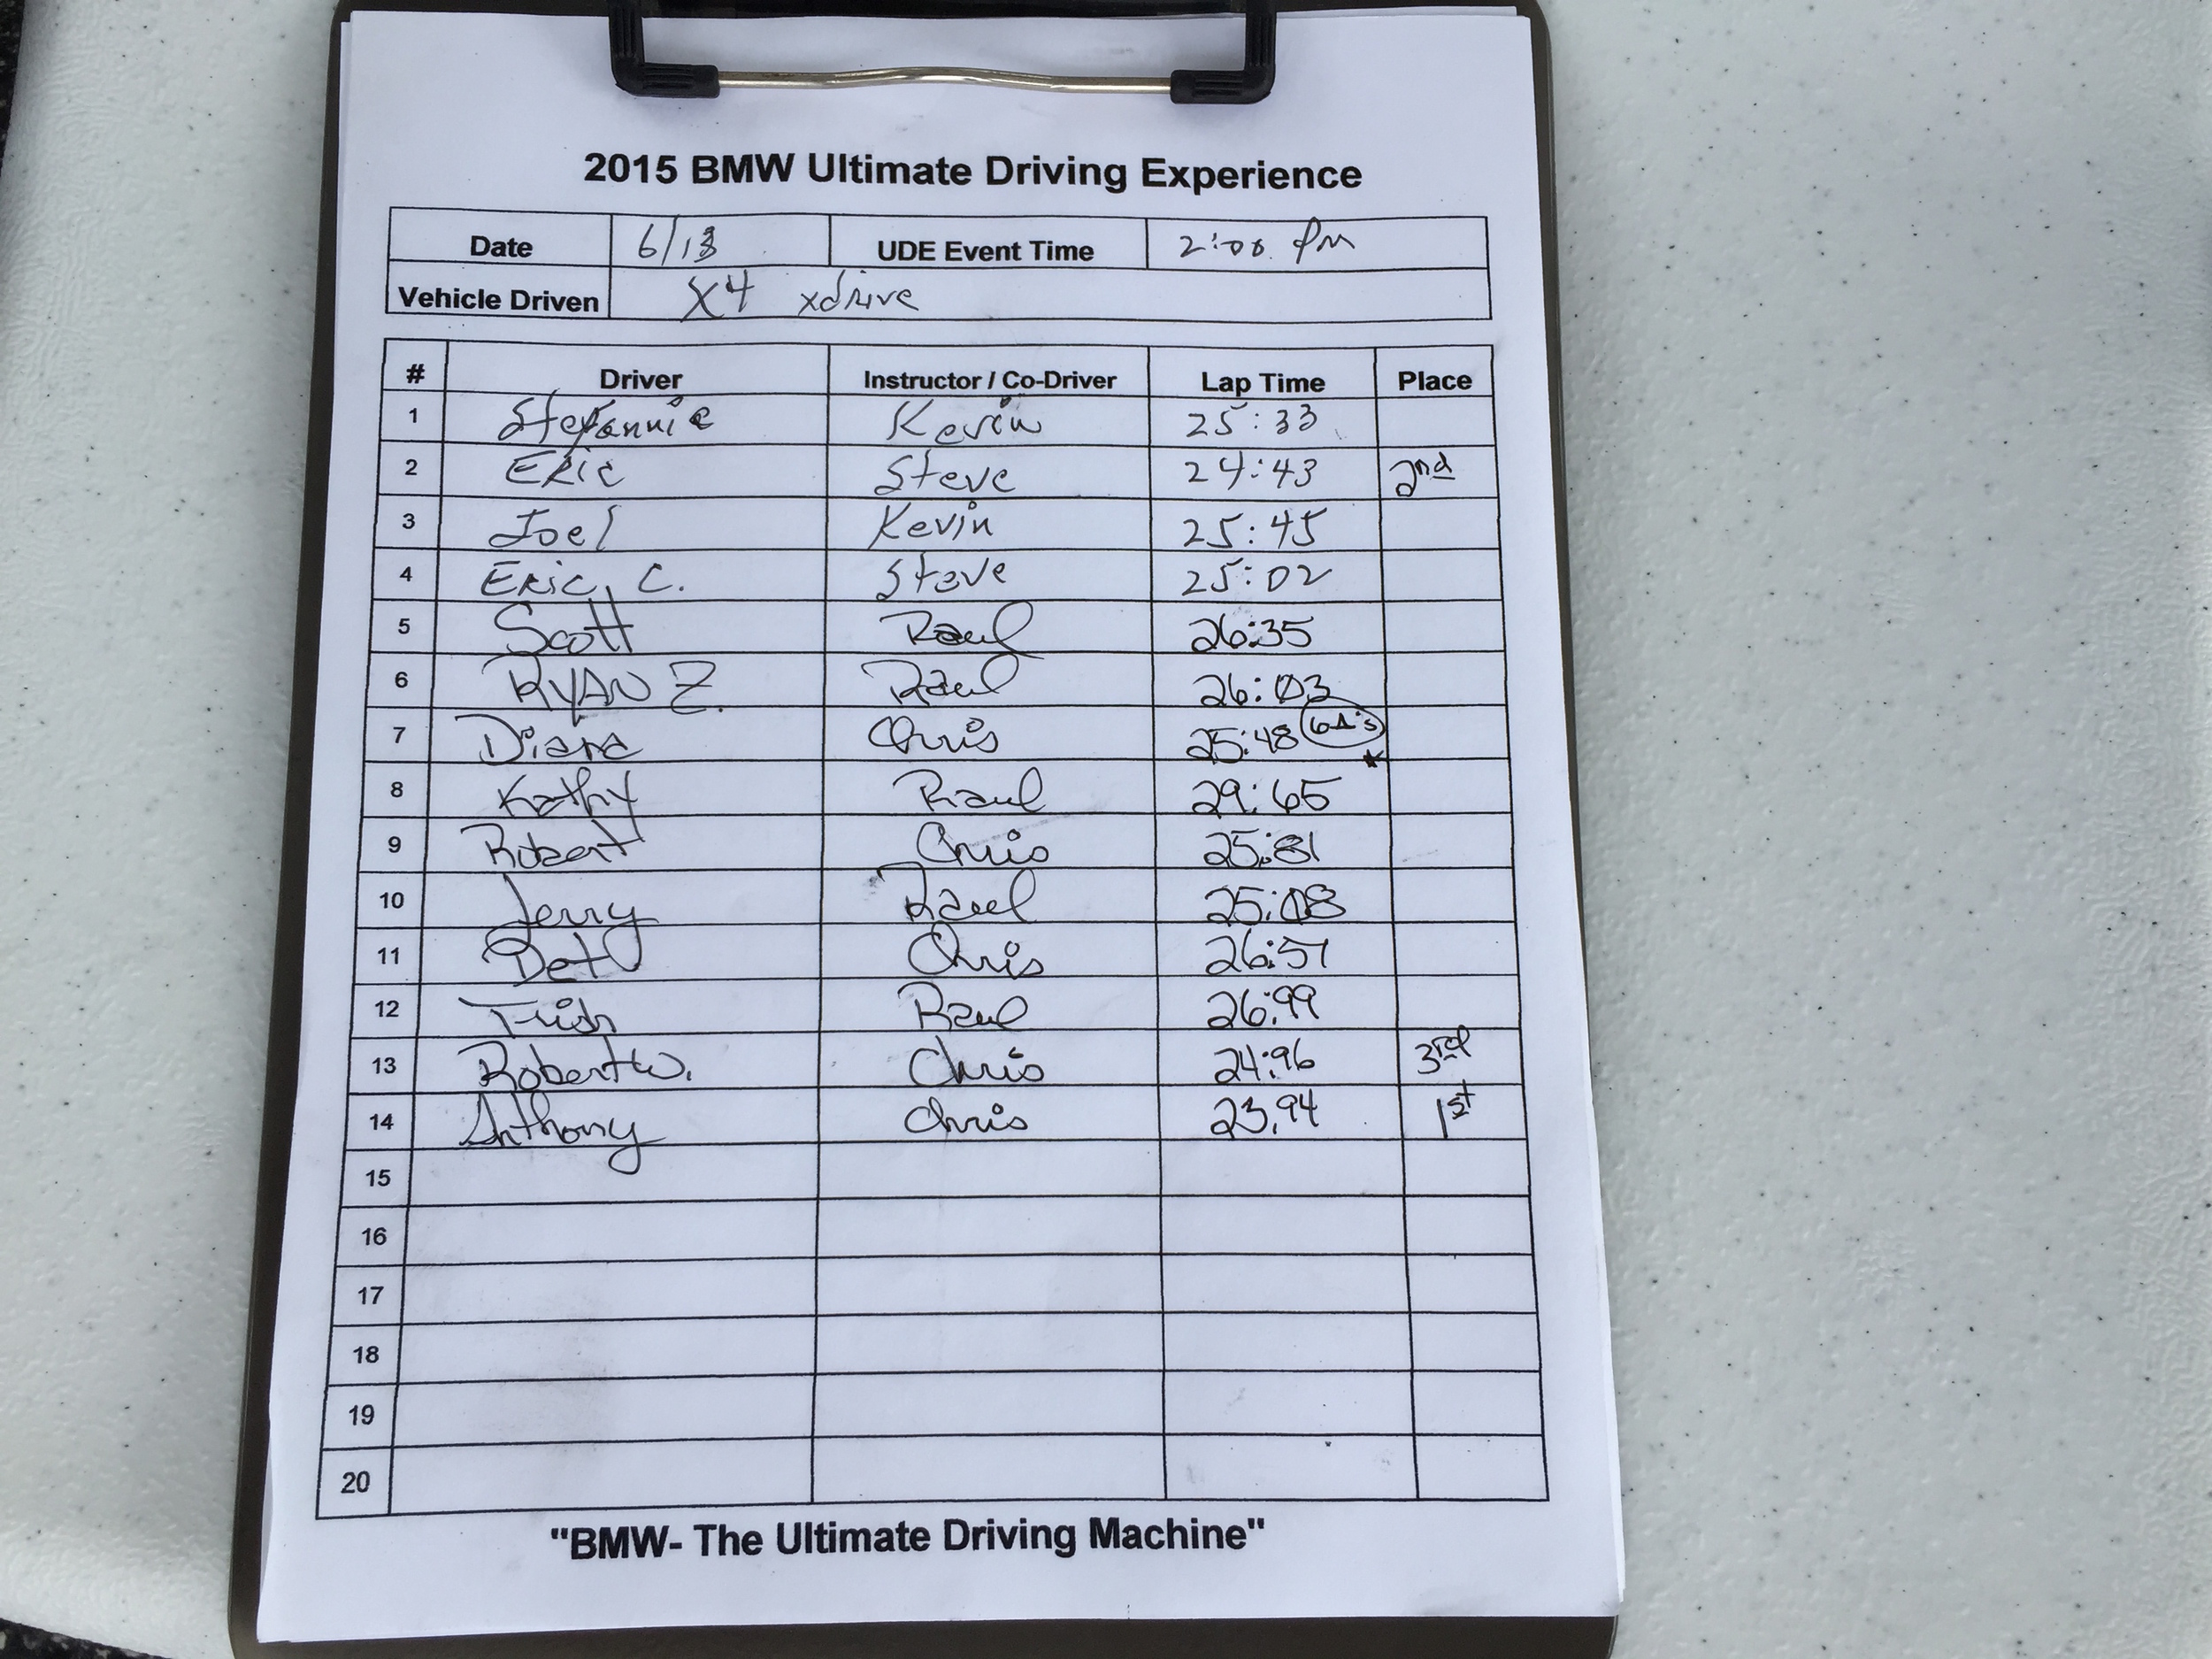 2015 BMW Ultimate Driving Experience
Date 6/13 UDE Event Time 2:00 PM
Vehicle Driven X4 xdrive
# Driver Instructor / Co-Driver Lap Time Place
1 Stefannie Kevin 25:33
2 Eric Steve 24:43 2nd
3 Joel Kevin 25:45
4 Eric C. Steve 25:02
5 Scott Raul 26:35
6 RYAN Z. Raul 26:03
7 Diana Chris 25:48
8 Kathy Raul 29:65
9 Robert Chris 25:81
10 Jerry Raul 25:08
11 Chris 26:57
12 Trish Raul 26:99
13 Robert W. Chris 24:96 3rd
14 Anthony Chris 23.94 1st
15
16
17
18
19
20
"BMW- The Ultimate Driving Machine"